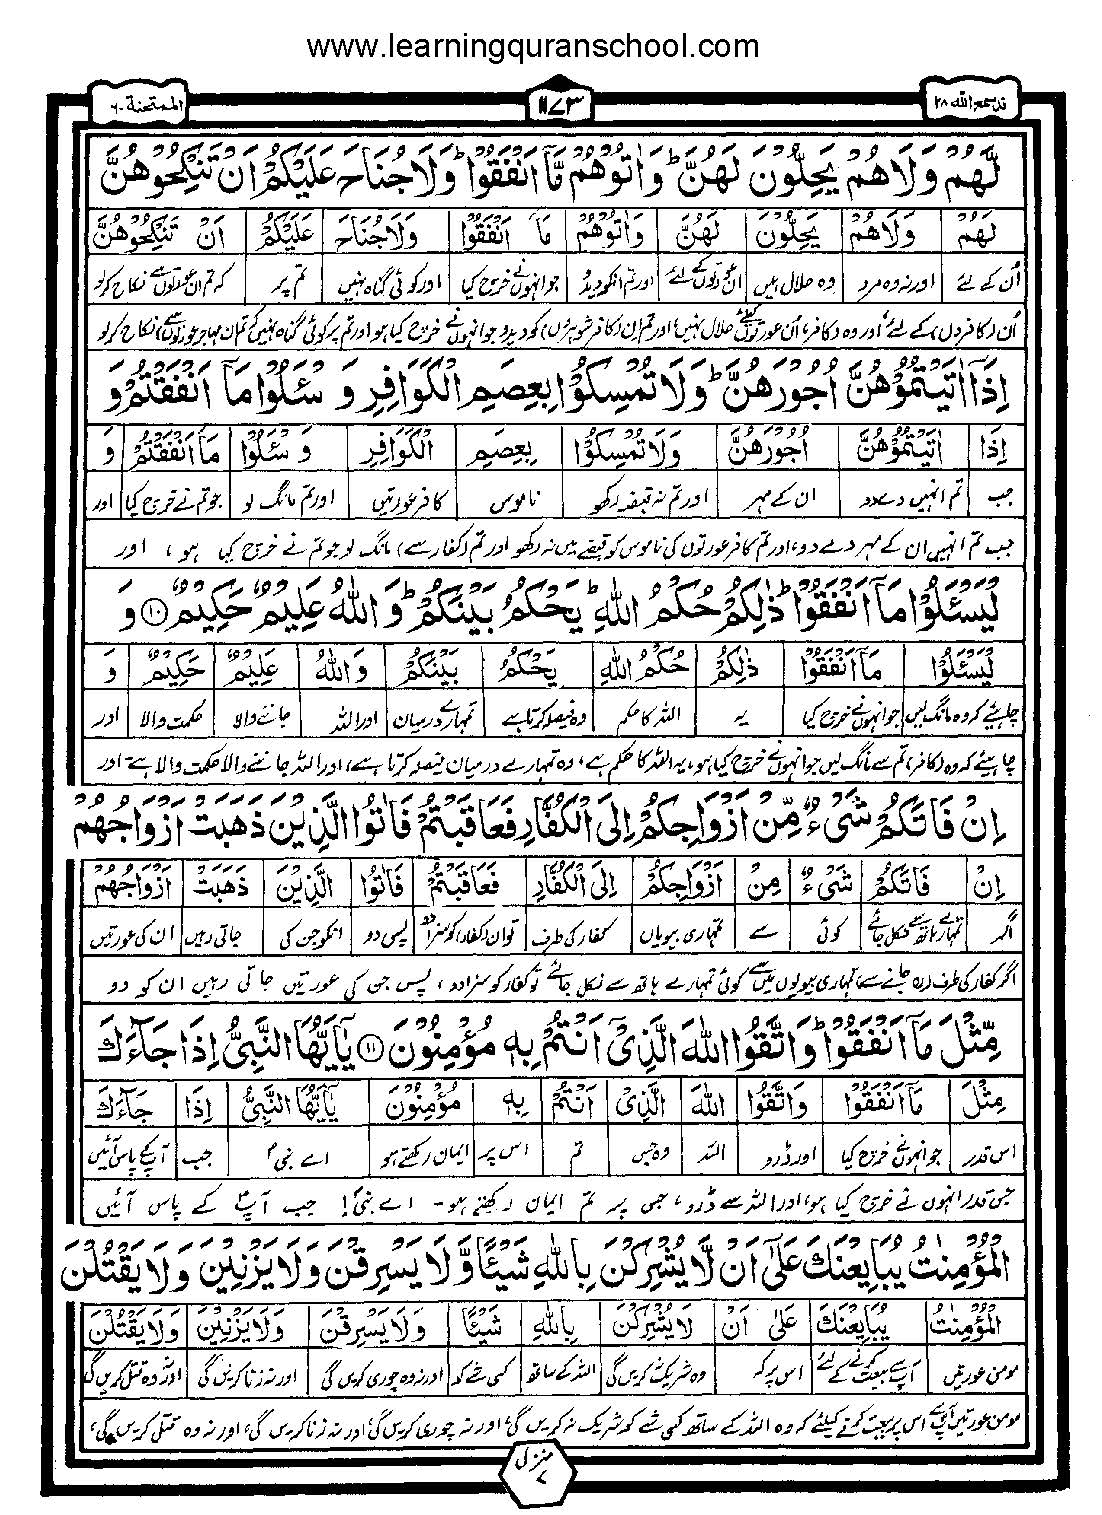 www.learningquranschool.com
قد سمع الله ٢٨
١١٧٣
الممتحنة ٦٠
لَهُمْ وَلَا هُمْ يَحِلُّونَ لَهُنَّ ۖ وَآتُوهُمْ مَّا أَنْفَقُوا ۚ وَلَا جُنَاحَ عَلَيْكُمْ أَنْ تَنْكِحُوهُنَّ
لَهُمْ وَلَا هُمْ يَحِلُّونَ لَهُنَّ وَاٰتُوهُمْ مَا أَنْفَقُوا وَلَا جُنَاحَ عَلَيْكُمْ أَنْ تَنْكِحُوهُنَّ
اُن کے لئے اور نہ وہ مرد وہ حلال ہیں ان عورتوں کے لئے اور تم انکو دیدو جو انہوں نے خرچ کیا اور کوئی گناہ نہیں تم پر کہ تم ان عورتوں سے نکاح کرلو
اُن (کافروں) کے لئے اور وہ (کافر) اُن عورتوں کیلئے حلال نہیں اور تم ان (کافر شوہروں) کو دیدو جو انہوں نے خرچ کیا ہو اور تم پر کوئی گناہ نہیں کہ تم ان مہاجر عورتوں سے نکاح کرلو
إِذَا اٰتَيْتُمُوهُنَّ أُجُورَهُنَّ ۚ وَلَا تُمْسِكُوا بِعِصَمِ الْكَوَافِرِ وَسْـَٔلُوا مَا أَنْفَقْتُمْ وَ
إِذَا اٰتَيْتُمُوهُنَّ أُجُورَهُنَّ وَلَا تُمْسِكُوا بِعِصَمِ الْكَوَافِرِ وَسْـَٔلُوا مَا أَنْفَقْتُمْ وَ
جب تم انہیں دے دو ان کے مہر اور تم نہ قبضہ رکھو ناموس کافر عورتیں اور تم مانگ لو جو تم نے خرچ کیا اور
جب تم انہیں ان کے مہر دے دو، اور تم کافر عورتوں کی ناموس کو قبضے میں نہ رکھو اور تم (کفار سے) مانگ لو جو تم نے خرچ کیا ہو، اور
لْيَسْـَٔلُوا مَا أَنْفَقُوا ۚ ذٰلِكُمْ حُكْمُ اللّٰهِ ۖ يَحْكُمُ بَيْنَكُمْ ۚ وَاللّٰهُ عَلِيمٌ حَكِيمٌ ١٠ وَ
لْيَسْـَٔلُوا مَا أَنْفَقُوا ذٰلِكُمْ حُكْمُ اللّٰهِ يَحْكُمُ بَيْنَكُمْ وَاللّٰهُ عَلِيمٌ حَكِيمٌ وَ
چاہیئے کہ وہ مانگ لیں جو انہوں نے خرچ کیا یہ اللہ کا حکم وہ فیصلہ کرتا ہے تمہارے درمیان اور اللہ جاننے والا حکمت والا اور
چاہیئے کہ وہ (کافر) تم سے مانگ لیں جو انہوں نے خرچ کیا ہو، یہ اللہ کا حکم ہے، وہ تمہارے درمیان فیصلہ کرتا ہے، اور اللہ جاننے والا حکمت والا ہے اور
إِنْ فَاتَكُمْ شَيْءٌ مِّنْ أَزْوَاجِكُمْ إِلَى الْكُفَّارِ فَعَاقَبْتُمْ فَاٰتُوا الَّذِينَ ذَهَبَتْ أَزْوَاجُهُمْ
إِنْ فَاتَكُمْ شَيْءٌ مِنْ أَزْوَاجِكُمْ إِلَى الْكُفَّارِ فَعَاقَبْتُمْ فَاٰتُوا الَّذِينَ ذَهَبَتْ أَزْوَاجُهُمْ
اگر تمہارے ہاتھ سے نکل جائے کوئی سے تمہاری بیویاں کفار کی طرف تو ان (کفار) کو سزا دو پس دو انکو جن کی جاتی رہیں ان کی عورتیں
اگر کفار کی طرف (رہ جانے سے) تمہاری بیویوں میں سے کوئی تمہارے ہاتھ سے نکل جائے تو کفار کو سزا دو، پس جن کی عورتیں جاتی رہیں ان کو دو
مِّثْلَ مَا أَنْفَقُوا ۚ وَاتَّقُوا اللّٰهَ الَّذِي أَنْتُمْ بِهِ مُؤْمِنُونَ ١١ يٰٓأَيُّهَا النَّبِيُّ إِذَا جَآءَكَ
مِثْلَ مَا أَنْفَقُوا وَاتَّقُوا اللّٰهَ الَّذِي أَنْتُمْ بِهِ مُؤْمِنُونَ يٰٓأَيُّهَا النَّبِيُّ إِذَا جَآءَكَ
اس قدر جو انہوں نے خرچ کیا اور ڈرو اللہ وہ جس تم اس پر ایمان رکھتے ہو اے نبیؐ جب آپکے پاس آئیں
جس قدر انہوں نے خرچ کیا ہو، اور اللہ سے ڈرو، جس پر تم ایمان رکھتے ہو۔ اے نبیؐ! جب آپؐ کے پاس آئیں
الْمُؤْمِنٰتُ يُبَايِعْنَكَ عَلٰٓى أَنْ لَّا يُشْرِكْنَ بِاللّٰهِ شَيْـًٔا وَّلَا يَسْرِقْنَ وَلَا يَزْنِينَ وَلَا يَقْتُلْنَ
الْمُؤْمِنٰتُ يُبَايِعْنَكَ عَلٰٓى أَنْ لَا يُشْرِكْنَ بِاللّٰهِ شَيْـًٔا وَلَا يَسْرِقْنَ وَلَا يَزْنِينَ وَلَا يَقْتُلْنَ
مومن عورتیں آپ سے بیعت کرنے کے لئے اس پر کہ وہ شریک نہ کریں گی اللہ کے ساتھ کسی شے کو اور نہ وہ چوری کریں گی اور نہ زنا کریں گی اور نہ وہ قتل کریں گی
مومن عورتیں آپ سے اس پر بیعت کرنے کیلئے کہ وہ اللہ کے ساتھ کسی شے کو شریک نہ کریں گی، اور نہ چوری کریں گی، اور نہ زنا کریں گی، اور نہ وہ قتل کریں گی،
منزل
٧